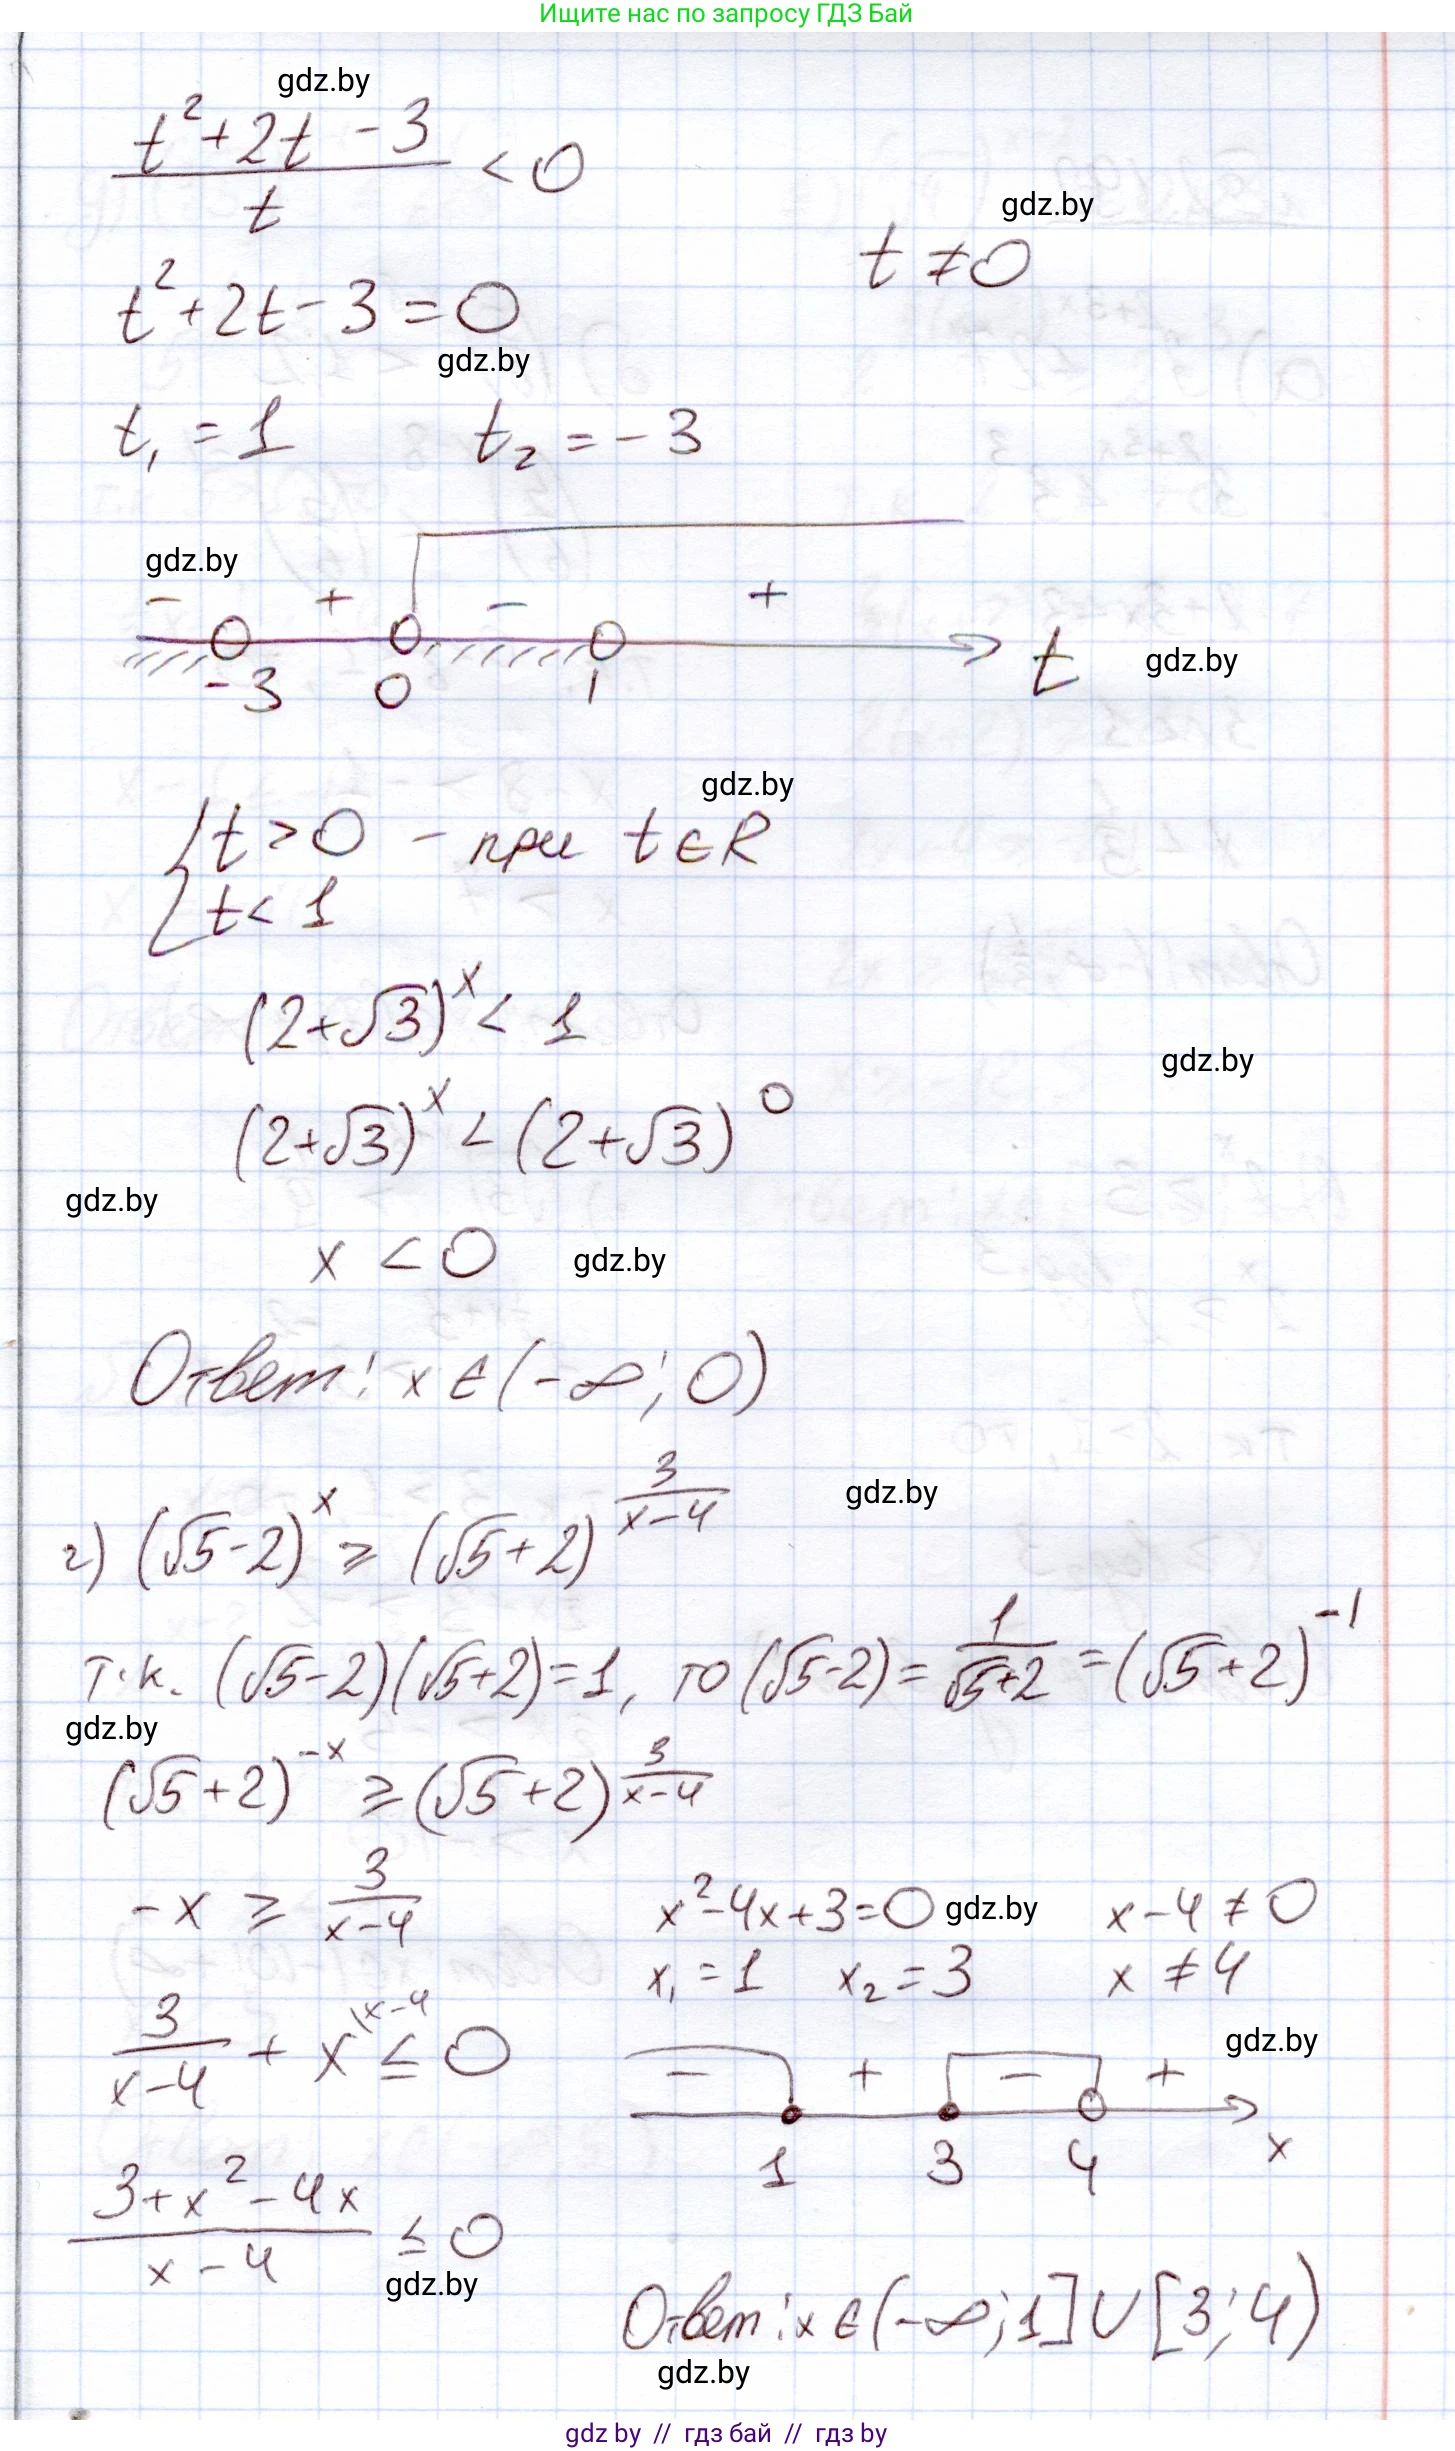 Ищите нас по запросу ГДЗ Бай
gdz.by
(t²+2t-3)/t < 0
gdz.by
t ≠ 0
t²+2t-3=0
gdz.by
t₁ = 1 t₂ = -3
gdz.by
- + - +
-3 0 1 t
gdz.by
gdz.by
{ t > 0 - при t ∈ R
t < 1
(2+√3)^x < 1
gdz.by
(2+√3)^x < (2+√3)^0
gdz.by
x < 0
gdz.by
Ответ: x ∈ (-∞; 0)
gdz.by
г) (√5-2)^x ≥ (√5+2)^(3/(x-4))
т.к. (√5-2)(√5+2)=1, то (√5-2) = 1/(√5+2) = (√5+2)^-1
gdz.by
(√5+2)^-x ≥ (√5+2)^(3/(x-4))
-x ≥ 3/(x-4)
3/(x-4) + x^(\x-4) ≤ 0
(3+x²-4x)/(x-4) ≤ 0
gdz.by
x²-4x+3=0 gdz.by x-4 ≠ 0
x₁ = 1 x₂ = 3 x ≠ 4
gdz.by
- + - +
1 3 4 x
Ответ: x ∈ (-∞; 1] ∪ [3; 4)
gdz.by
gdz by // гдз бай // гдз by